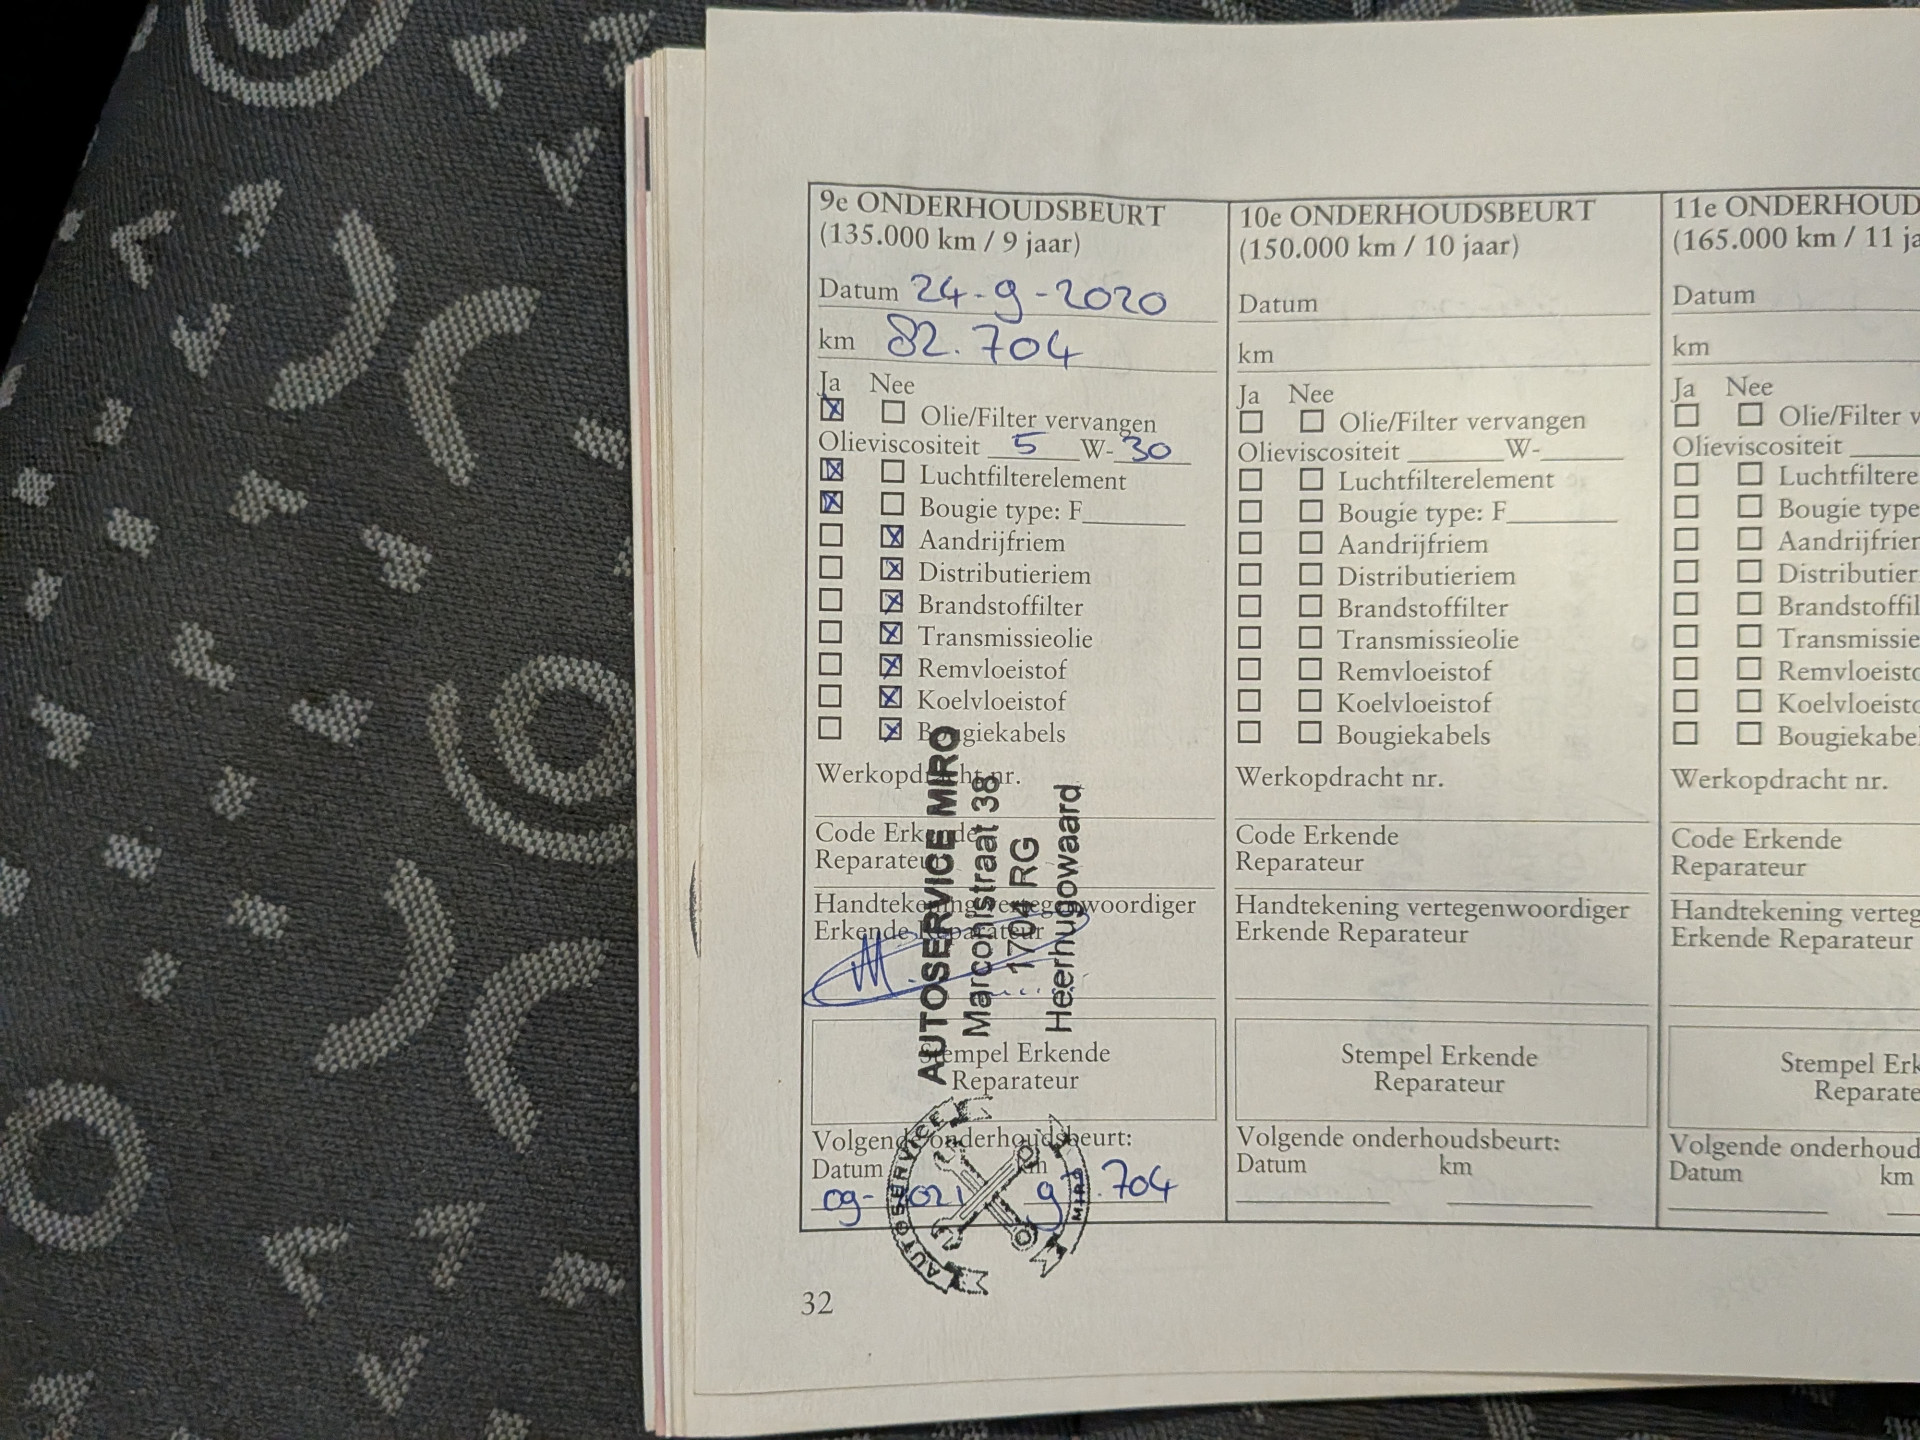 9e ONDERHOUDSBEURT
(135.000 km / 9 jaar)
Datum 24-9-2020
km 82.704
Ja Nee
Olie/Filter vervangen
Olieviscositeit 5 W-30
Luchtfilterelement
Bougie type: F
Aandrijfriem
Distributieriem
Brandstoffilter
Transmissieolie
Remvloeistof
Koelvloeistof
Bougiekabels
Werkopdracht nr.
Code Erkende
Reparateur
Handtekening vertegenwoordiger
Erkende Reparateur
Stempel Erkende
Reparateur
Volgende onderhoudsbeurt:
Datum km
09-2021 97.704
AUTOSERVICE MIRO
Marconistraat 38
1704 RG
Heerhugowaard
AUTOSERVICE
MIRO
10e ONDERHOUDSBEURT
(150.000 km / 10 jaar)
Datum
km
Ja Nee
Olie/Filter vervangen
Olieviscositeit W-
Luchtfilterelement
Bougie type: F
Aandrijfriem
Distributieriem
Brandstoffilter
Transmissieolie
Remvloeistof
Koelvloeistof
Bougiekabels
Werkopdracht nr.
Code Erkende
Reparateur
Handtekening vertegenwoordiger
Erkende Reparateur
Stempel Erkende
Reparateur
Volgende onderhoudsbeurt:
Datum km
11e ONDERHOUD
(165.000 km / 11 ja
Datum
km
Ja Nee
Olie/Filter v
Olieviscositeit
Luchtfiltere
Bougie type
Aandrijfrier
Distributier
Brandstoffil
Transmissie
Remvloeisto
Koelvloeisto
Bougiekabe
Werkopdracht nr.
Code Erkende
Reparateur
Handtekening verteg
Erkende Reparateur
Stempel Erk
Reparate
Volgende onderhoud
Datum km
32